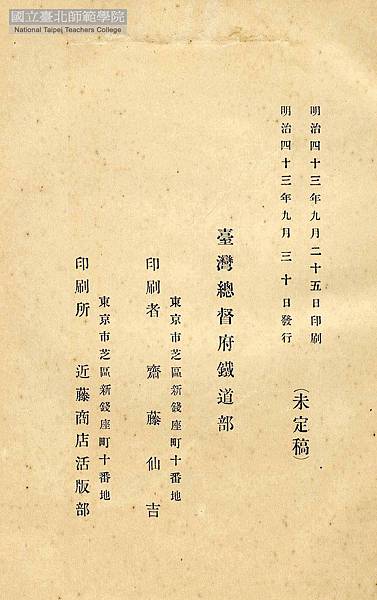 國立臺北師範學院
National Taipei Teachers College
明治四十三年九月二十五日印刷
明治四十三年九月三十日發行
（未定稿）
臺灣總督府鐵道部
東京市芝區新錢座町十番地
印刷者　齋藤仙吉
東京市芝區新錢座町十番地
印刷所　近藤商店活版部